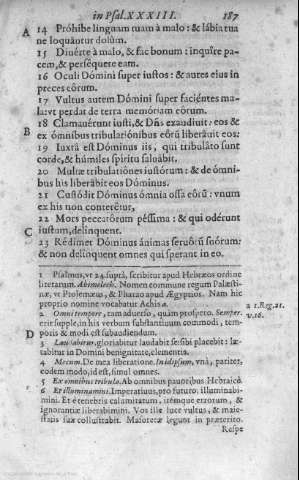 in Psal. XXXIII. 187
A 14 Próhibe linguam tuam à malo: & lábia tua
ne loquántur dolũm.
15 Diuérte à malo, & fac bonum: inquíre pa-
cem, & perséquere eam.
16 Oculi Dómini super iustos: & aures eius in
preces eórum.
17 Vultus autem Dómini super faciéntes ma-
la: vt perdat de terra memóriam eórum.
18 Clamauérunt iusti, & Dñs exaudíuit: eos: &
B ex ómnibus tribulatiónibus eõrũ liberáuit eos:
19 Iuxtà est Dóminus iis, qui tribuláto sunt
corde, & húmiles spíritu saluábit.
20 Multæ tribulatiónes iustórum: & de ómni-
bus his liberábit eos Dóminus.
21 Custódit Dóminus ómnia ossa eõrũ: vnum
ex his non conterétur,
22 Mors peccatórum péssima: & qui odérunt
C iustum, delínquent.
23 Rédimet Dóminus ánimas seruórũ suórum:
& non delínquent omnes qui sperant in eo.
1 Psalmus, vt 24. suprà, scribitur apud Hebræos ordine
literarum. Abimelech. Nomen commune regum Palæsti-
næ, vt Ptolemæus, & Pharao apud Ægyptios. Nam hic
proprio nomine vocabatur Achis a. a 1. Reg. 21.
2 Omni tempore, tam aduerso, quàm prospero. Semper, v. 10.
erit supple, in his verbum substantiuum commodi, tem-
D poris & modi est subaudiendum.
3 Laudabitur, gloriabitur laudabit se: sibi placebit: læ-
tabitur in Domini benignitate, clementia.
4 Mecum. De mea liberatione. In idipsum, vnà, pariter,
eodem modo, id est, simul omnes.
5 Ex omnibus tribula. Ab omnibus pauoribus Hebraicè.
6 Et illuminamini. Imperatiuus, pro futuro, illuminabi-
mini. Et è tenebris calamitatum, itémque errorum, &
ignorantiæ liberabimini. Vos ille luce vultus, & maie-
statis suæ collustrabit. Maioretæ legunt in præterito.
Respe